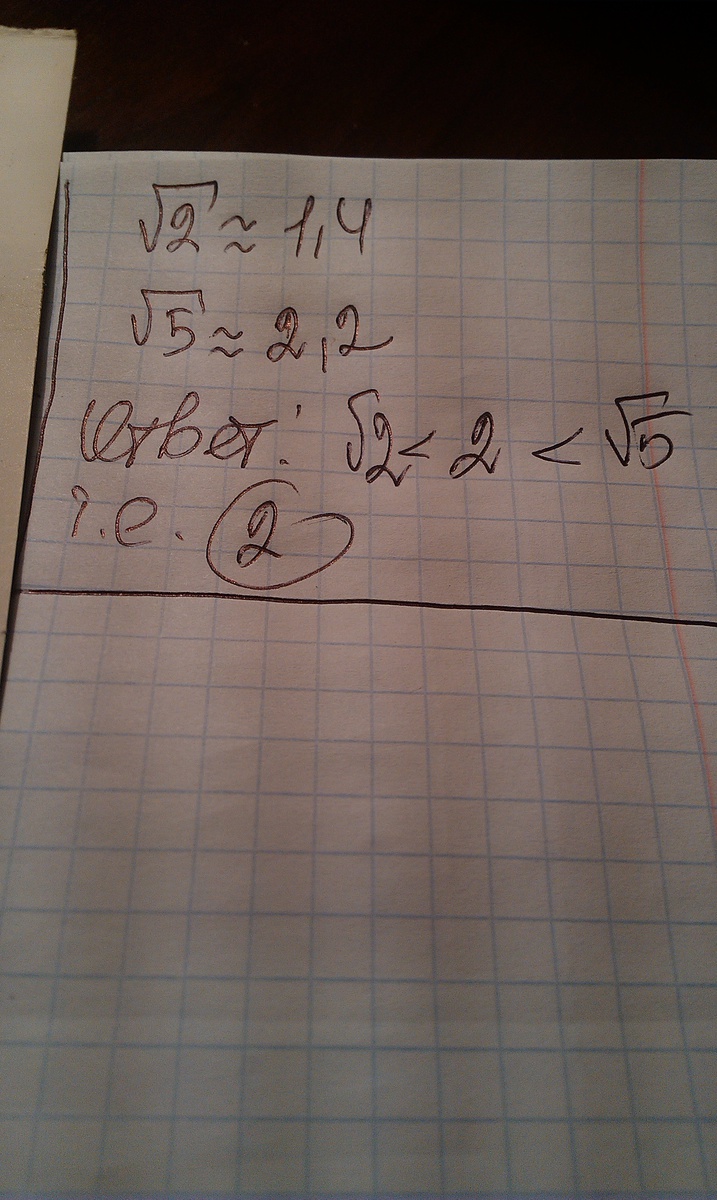 √2 ≈ 1,4
√5 ≈ 2,2
Ответ: √2 < 2 < √5
i.e. 2